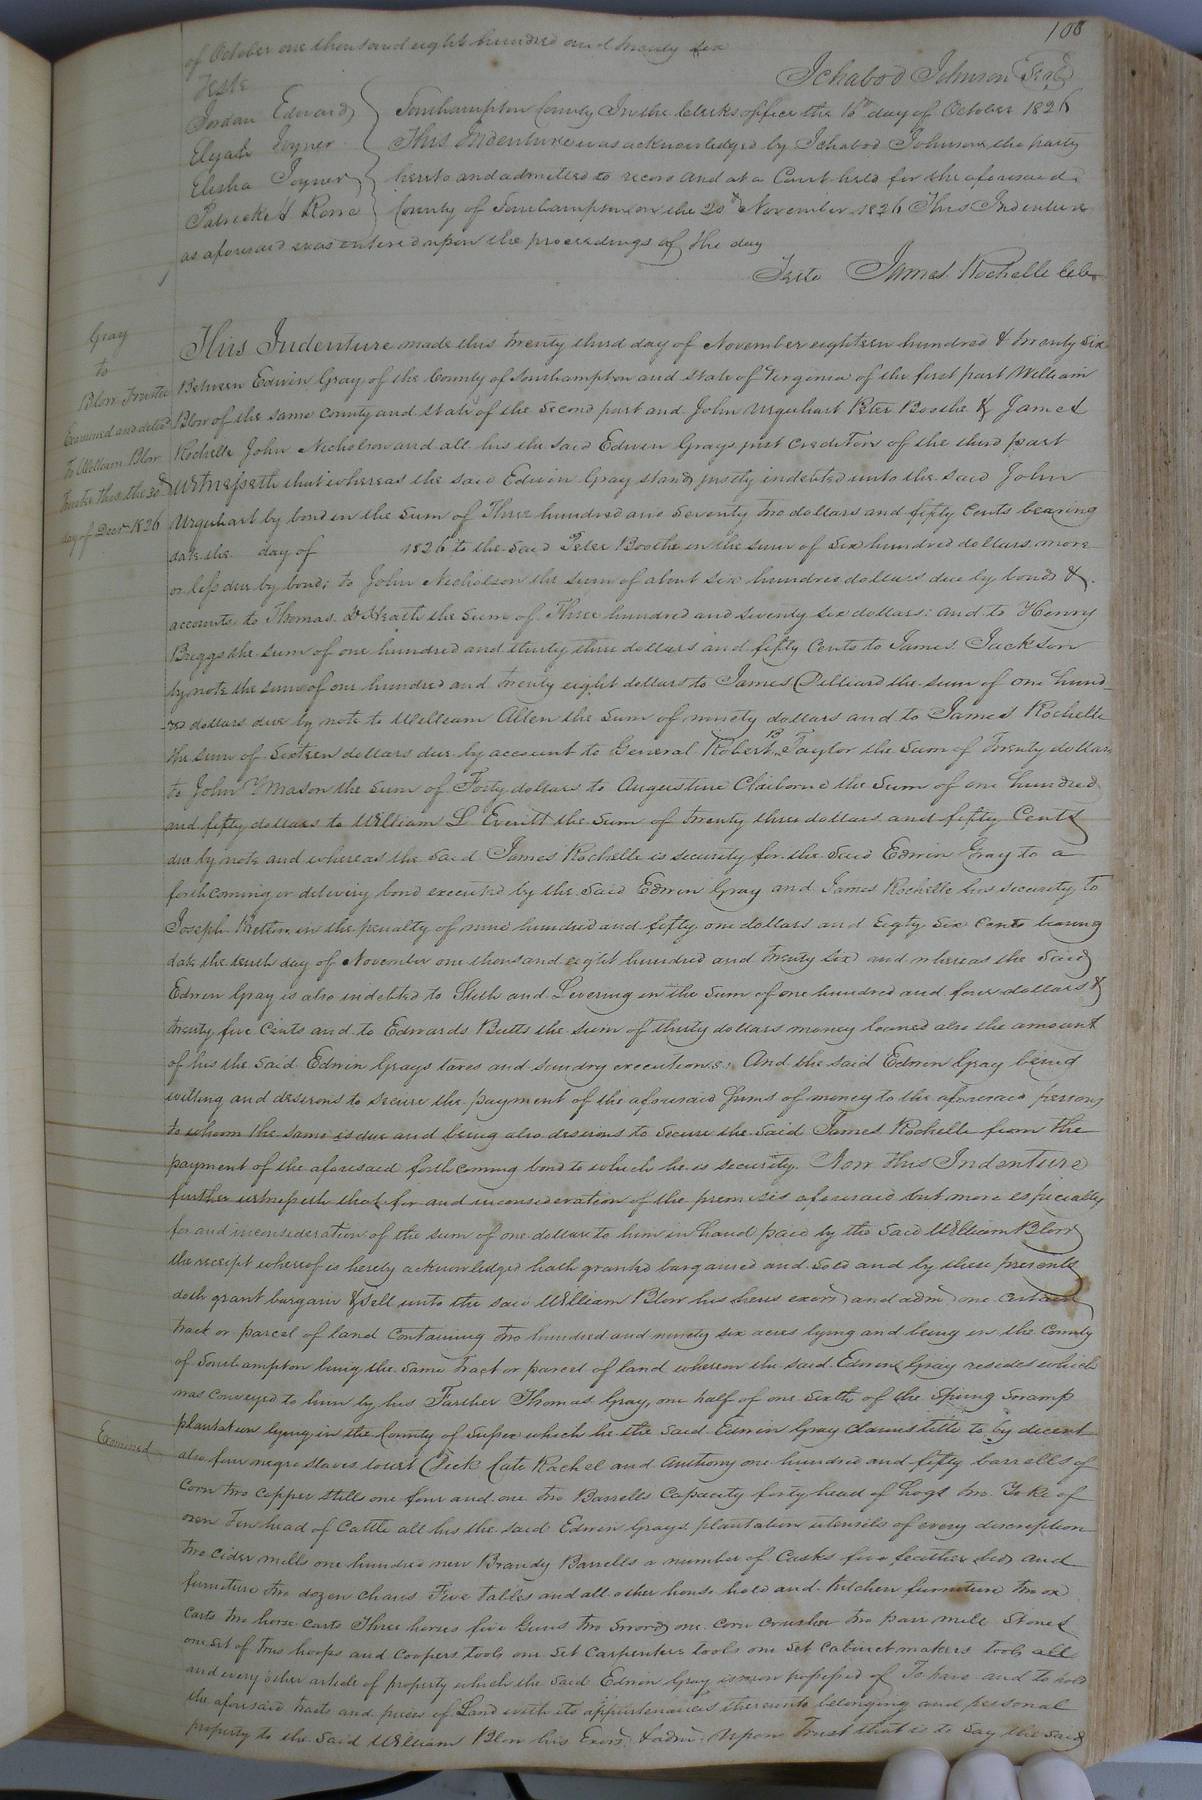 108
of October one thousand eight hundred and twenty six
Teste
Ichabod Johnson Seal
Jordan Edwards
Elijah Joyner
Elisha Joyner
Southampton County In the Clerks office the 16th day of October 1826
This Indenture was acknowledged by Ichabod Johnson the party
hereto and admitted to record And at a Court held for the aforesaid
County of Southampton on the 20th November 1826 This Indenture
as aforesaid was entered upon the proceedings of the day
Teste James Rochelle
Gray
to
Blow Trustee
Examined and delivd
To William Blow
Trustee this the 30
day of Decr 1826
This Indenture made this twenty third day of November eighteen hundred & twenty six
Between Edwin Gray of the County of Southampton and State of Virginia of the first part William
Blow of the same County and State of the second part and John Urquhart Peter Boothe & James
Rochelle John Nicholson and all his the said Edwin Grays just Creditors of the third part
Witnesseth that whereas the said Edwin Gray stands justly indebted unto the said John
Urquhart by bond in the sum of Three hundred and seventy two dollars and fifty Cents bearing
date the day of 1826 to the said Peter Boothe in the sum of Six hundred dollars more
or less due by bond; to John Nicholson the sum of about six hundred dollars due by bonds &
accounts to Thomas Heath the sum of Three hundred and seventy six dollars: and to Henry
Briggs the sum of one hundred and thirty three dollars and fifty Cents to James Jackson
by note the sum of one hundred and twenty eight dollars to James Dilliard the sum of one hund-
red dollars due by note to William Allen the sum of ninety dollars and to James Rochelle
the sum of Sixteen dollars due by account to General Robert B Taylor the sum of Twenty dollars
to John Y Mason the sum of Forty dollars to Augustine Claiborne the sum of one hundred
and fifty dollars to William L Everitt the sum of twenty three dollars and fifty Cents
due by note and whereas the said James Rochelle is security for the said Edwin Gray to a
forthcoming or delivery bond executed by the said Edwin Gray and James Rochelle his security to
Joseph in the penalty of nine hundred and fifty one dollars and Eigty six Cents bearing
date the tenth day of November one thousand eight hundred and twenty six and whereas the said
Edwin Gray is also indebted to Stith and Levering in the sum of one hundred and four dollars &
twenty five Cents and to Edwards Butts the sum of thirty dollars money loaned also the amount
of his the said Edwin Grays taxes and sundry executions. And the said Edwin Gray being
willing and desirous to secure the payment of the aforesaid sums of money to the aforesaid persons
to whom the same is due and being also desirous to secure the said James Rochelle from the
payment of the aforesaid forthcoming bond to which he is security. Now this Indenture
further witnesseth that for and in consideration of the premises aforesaid but more especially
for and in consideration of the sum of one dollar to him in hand paid by the said William Blow
the receipt whereof is hereby acknowledged hath granted bargained and sold and by these presents
doth grant bargain & sell unto the said William Blow his heirs exors and adm one certain
tract or parcel of land Containing two hundred and ninety six acres lying and being in the County
of Southampton being the same tract or parcel of land whereon the said Edwin Gray resides which
was conveyed to him by his Farther Thomas Gray, one half of one sixth of the Spring Swamp
plantation lying in the County of Sussex which he the said Edwin Gray claims title to by decent
Examined
also four negro slaves towit Dick Cate Rachel and Anthony one hundred and fifty barrells of
Corn two copper stills one four and one two Barrells Capacity forty head of hogs two Yoke of
oxen Ten head of Cattle all his the said Edwin Grays plantation utensils of every discreption
two cider mills one hundred new Brandy Barrells a number of Casks five feather beds and
furniture two dozen chairs Five Tables and all other house hold and kitchen furniture two ox
carts two horse carts Three horses five Guns two swords one corn crusher two pair mill stones
one set of truss hoops and Coopers tools one set Carpenters tools one set Cabinet makers tools all
and every other article of property which the said Edwin Gray is now possessed of To have and to hold
the aforesaid tracts and pieces of Land with its appurtenances thereunto belonging and personal
property to the said William Blow his Exors & admr Upon Trust that is to say the said